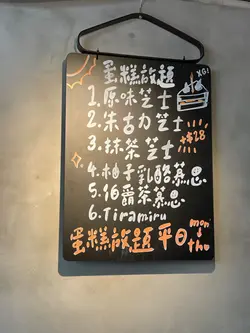 蛋糕放題
XGI
1. 原味芝士
2. 朱古力芝士
+$28
3. 抹茶芝士
4. 柚子乳酪慕思
5. 伯爵茶慕思
6. Tiramiru
蛋糕放題平日 mon
↓
thu